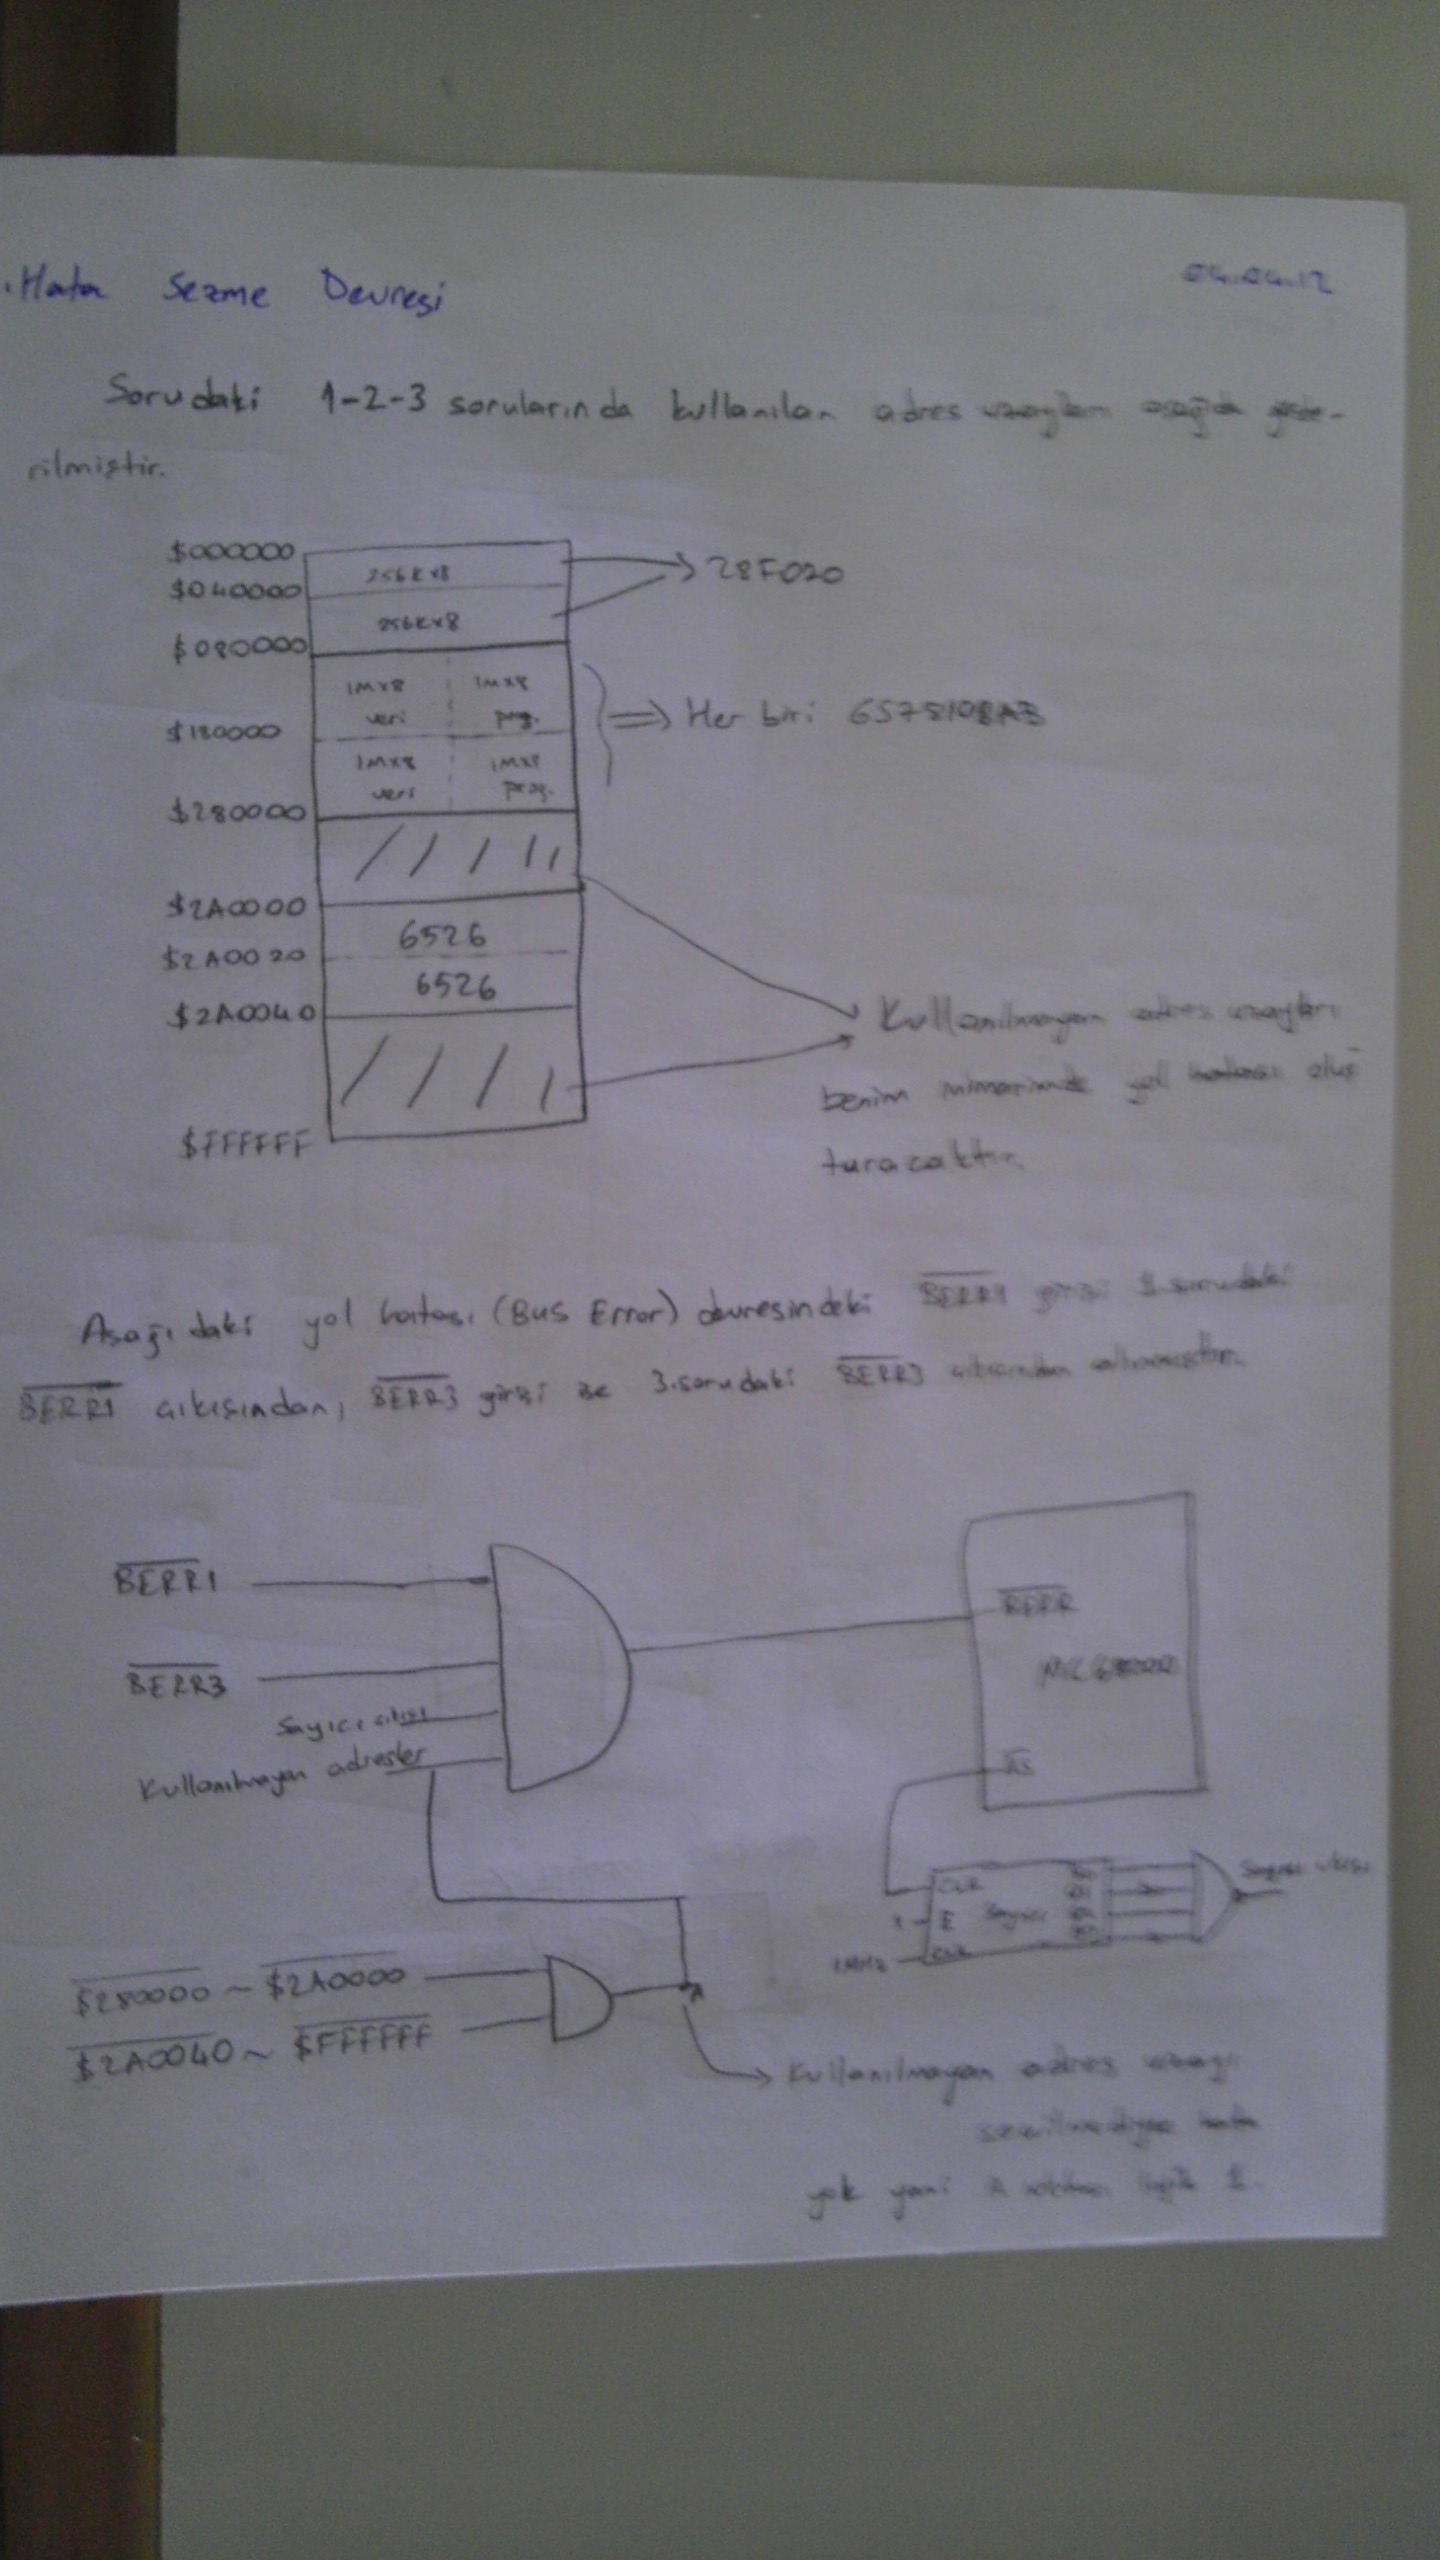 .Hata Sezme Devresi
04.04.12
Sorudaki 1-2-3 sorularında kullanılan adres uzayları aşağıda göste-
rilmiştir.
$000000
256Kx8
28F020
$040000
256Kx8
$080000
1Mx8 1Mx8
veri prog.
Her biri
$180000
1Mx8 1Mx8
veri prog.
$280000
$2A0000
6526
$2A0020
6526
$2A0040
Kullanılmayan adres uzayları
benim mimarimde yol hatası oluş
turacaktır.
$FFFFFF
Aşağıdaki yol hatası (Bus Error) devresindeki BERR1 girişi 1.sorudaki
BERR1 çıkışından, BERR3 girişi ise 3.sorudaki BERR3 çıkışından alınmıştır.
BERR1
BERR
BERR3
Sayıcı çıkışı
AS
Kullanılmayan adresler
CLR
E Sayıcı
1MHz
Sayıcı çıkışı
$280000 ~ $2A0000
A
$2A0040 ~ $FFFFFF
Kullanılmayan adres uzayı
yok yani A noktası lojik 1.